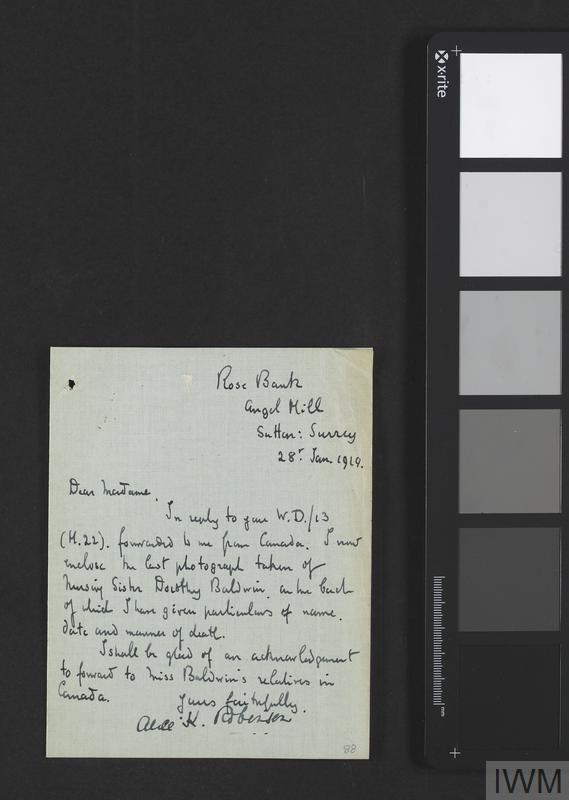 Rose Bank
Angel Hill
Sutton: Surrey
28th Jan. 1919.
Dear Madame,
In reply to your W.D./13
(H.22). forwarded to me from Canada. I now
enclose the last photograph taken of
Nursing Sister Dorothy Baldwin, on the back
of which I have given particulars of name,
date and manner of death.
I shall be glad of an acknowledgement
to forward to Miss Baldwin's relatives in
Canada.
Yours faithfully.
K. Robinson
88
x·rite
mm
IWM